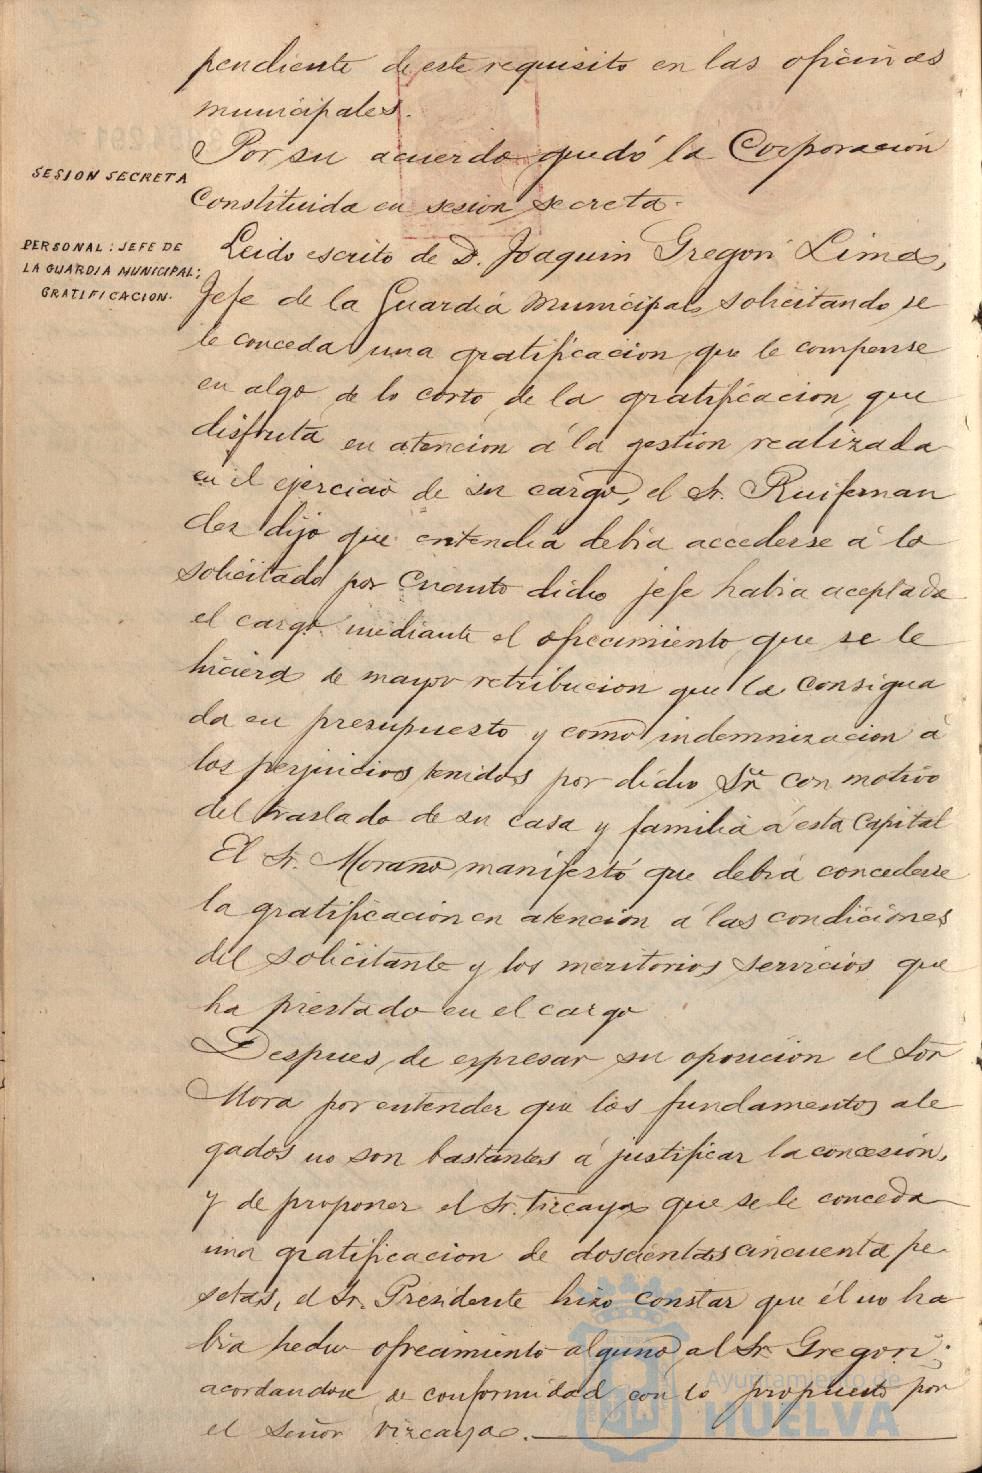 pendiente de este requisito en las oficinas
municipales.
Por su acuerdo quedó la Corporacion
SESION SECRETA
Constituida en sesion secreta.
PERSONAL: JEFE DE
LA GUARDIA MUNICIPAL:
GRATIFICACION.
Leido escrito de D. Joaquin Gregori Limos,
Jefe de la Guardia Municipal solicitando se
le conceda una gratificacion que le compense
en algo de lo corto de la gratificacion que
disfruta en atencion á la gestion realizada
en el ejercicio de su cargo, el Sr. Ruifernan
dez dijo que entendia debia accederse á lo
solicitado por cuanto dicho jefe habia aceptado
el cargo mediante el ofrecimiento que se le
hiciera de mayor retribucion que la consigna
da en presupuesto y como indemnizacion á
los perjuicios tenidos por dicho Sr. con motivo
del traslado de su casa y familia á esta Capital
El Sr. Morano manifestó que debia concederse
la gratificacion en atencion á las condiciones
del solicitante y los meritorios servicios que
ha prestado en el cargo
Despues de expresar su oposicion el Sor
Mora por entender que los fundamentos ale
gados no son bastantes á justificar la concesión,
y de proponer el Sr. Vizcaya que se le conceda
una gratificacion de doscientas cincuenta pe
setas, el Sr. Presidente hizo constar que él no ha
bia hecho ofrecimiento alguno al Sr. Gregori;
acordandose de conformidad con lo propuesto por
el Señor Vizcaya.
Ayuntamiento de
HUELVA